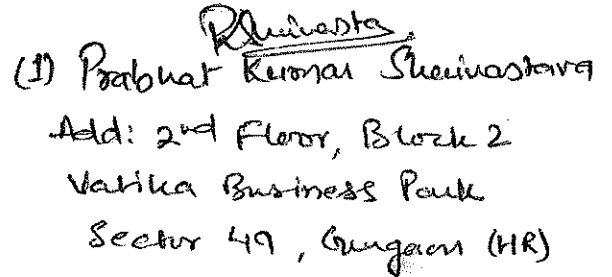 (1) Prabhat Kumar Shrivastava
Add: 2nd Floor, Block 2
Vatika Business Park
Sector 49, Gurgaon (HR)